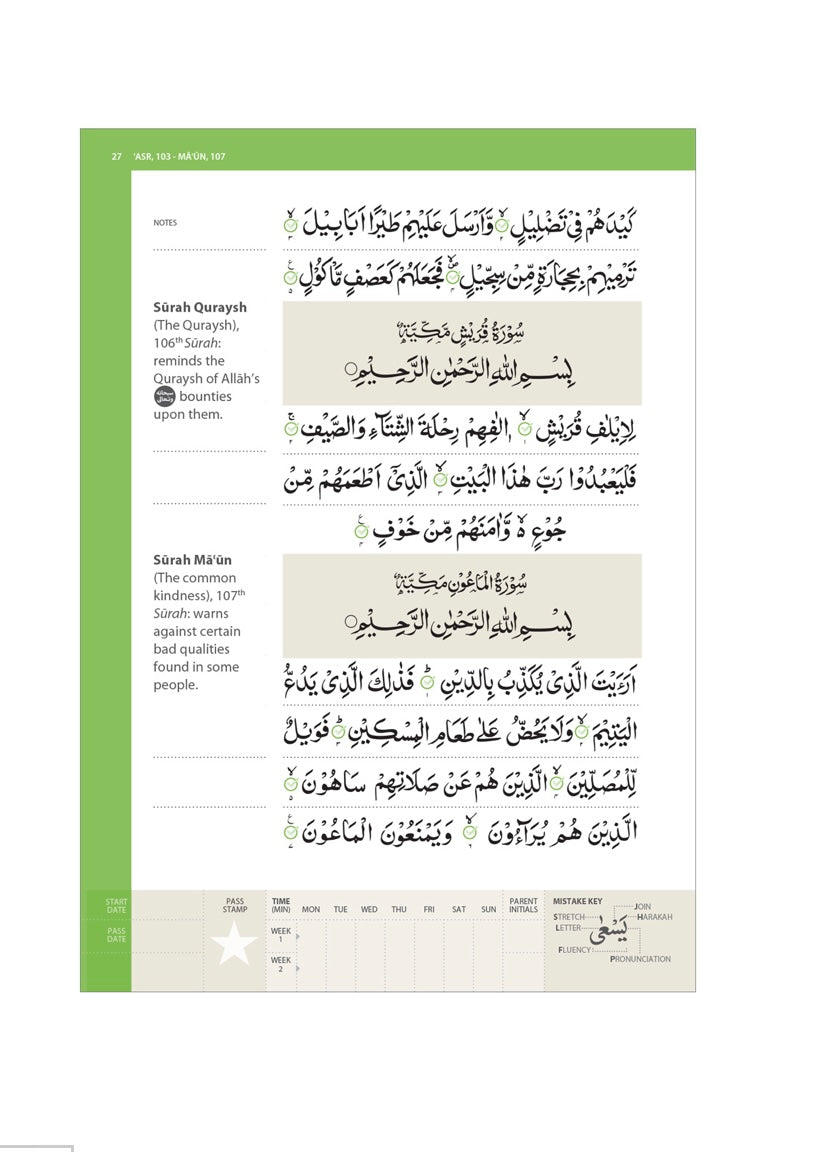 27 ʿASR, 103 - MĀʿŪN, 107
NOTES
كَيْدَهُمْ فِيْ تَضْلِيْلٍ ۙ وَّاَرْسَلَ عَلَيْهِمْ طَيْرًا اَبَابِيْلَ ۙ
تَرْمِيْهِمْ بِحِجَارَةٍ مِّنْ سِجِّيْلٍ ۪ۙ فَجَعَلَهُمْ كَعَصْفٍ مَّاْكُوْلٍ
Sūrah Quraysh
(The Quraysh),
106th Sūrah:
reminds the
Quraysh of Allāh’s
سبحانه وتعالى bounties
upon them.
سُوْرَةُ قُرَيْشٍ مَكِّيَّةٌ
بِسْمِ اللّٰهِ الرَّحْمٰنِ الرَّحِيْمِ
لِاِيْلٰفِ قُرَيْشٍ ۙ اٖلٰفِهِمْ رِحْلَةَ الشِّتَآءِ وَالصَّيْفِ ۚ
فَلْيَعْبُدُوْا رَبَّ هٰذَا الْبَيْتِ ۙ الَّذِيْٓ اَطْعَمَهُمْ مِّنْ
جُوْعٍ ۙ۬ وَّاٰمَنَهُمْ مِّنْ خَوْفٍ
Sūrah Māʿūn
(The common
kindness), 107th
Sūrah: warns
against certain
bad qualities
found in some
people.
سُوْرَةُ الْمَاعُوْنِ مَكِّيَّةٌ
بِسْمِ اللّٰهِ الرَّحْمٰنِ الرَّحِيْمِ
اَرَءَيْتَ الَّذِيْ يُكَذِّبُ بِالدِّيْنِ ؕ فَذٰلِكَ الَّذِيْ يَدُعُّ
الْيَتِيْمَ ۙ وَلَا يَحُضُّ عَلٰى طَعَامِ الْمِسْكِيْنِ ؕ فَوَيْلٌ
لِّلْمُصَلِّيْنَ ۙ الَّذِيْنَ هُمْ عَنْ صَلَاتِهِمْ سَاهُوْنَ ۙ
الَّذِيْنَ هُمْ يُرَآءُوْنَ ۙ وَيَمْنَعُوْنَ الْمَاعُوْنَ
START DATE
PASS DATE
PASS STAMP
TIME (MIN) MON TUE WED THU FRI SAT SUN PARENT INITIALS
WEEK 1
WEEK 2
MISTAKE KEY
JOIN
STRETCH HARAKAH
LETTER يَسْعٰى
FLUENCY
PRONUNCIATION